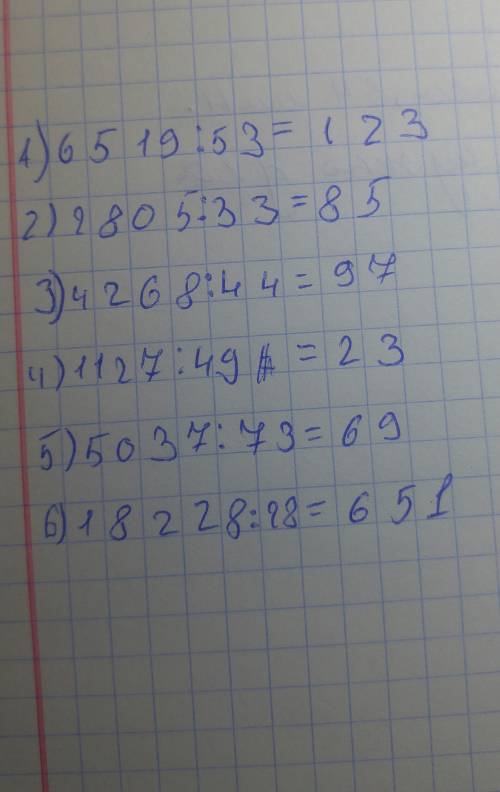 1) 6519:53=123
2) 2805:33=85
3) 4268:44=97
4) 1127:49=23
5) 5037:73=69
6) 18228:28=651